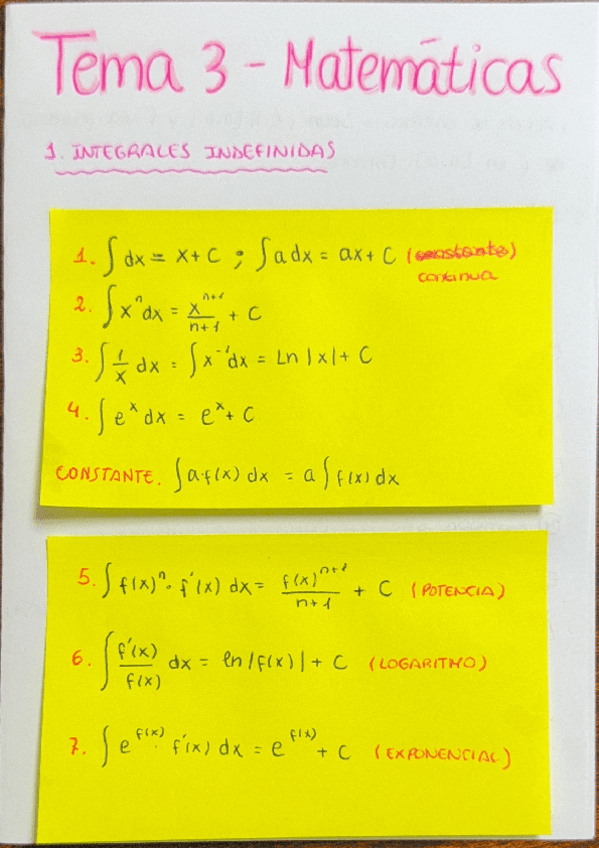 Tema 3 - Matemáticas
1. INTEGRALES INDEFINIDAS
1. ∫ dx = x + C ; ∫ a dx = ax + C (constante)
continua
2. ∫ xⁿ dx = xⁿ⁺¹/n+1 + C
3. ∫ 1/x dx = ∫ x⁻¹ dx = Ln |x| + C
4. ∫ eˣ dx = eˣ + C
CONSTANTE. ∫ a·f(x) dx = a ∫ f(x) dx
5. ∫ f(x)ⁿ · f'(x) dx = f(x)ⁿ⁺¹/n+1 + C (POTENCIA)
6. ∫ f'(x)/f(x) dx = ln |f(x)| + C (LOGARITMO)
7. ∫ e^f(x) · f'(x) dx = e^f(x) + C (EXPONENCIAL)